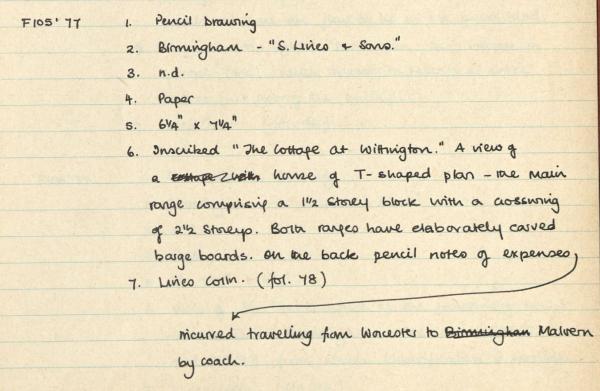 F105'77 1. Pencil Drawing
2. Birmingham - "S. Lines & Sons."
3. n.d.
4. Paper
5. 6¼" x 7¼"
6. Inscribed "The Cottage at Withington." A view of
a cottage with house of T-shaped plan - the main
range comprising a 1½ storey block with a crosswing
of 2½ storeys. Both ranges have elaborately carved
barge boards. On the back pencil notes of expenses
7. Lines Colln. (fol. 78)
incurred travelling from Worcester to Birmingham Malvern
by coach.